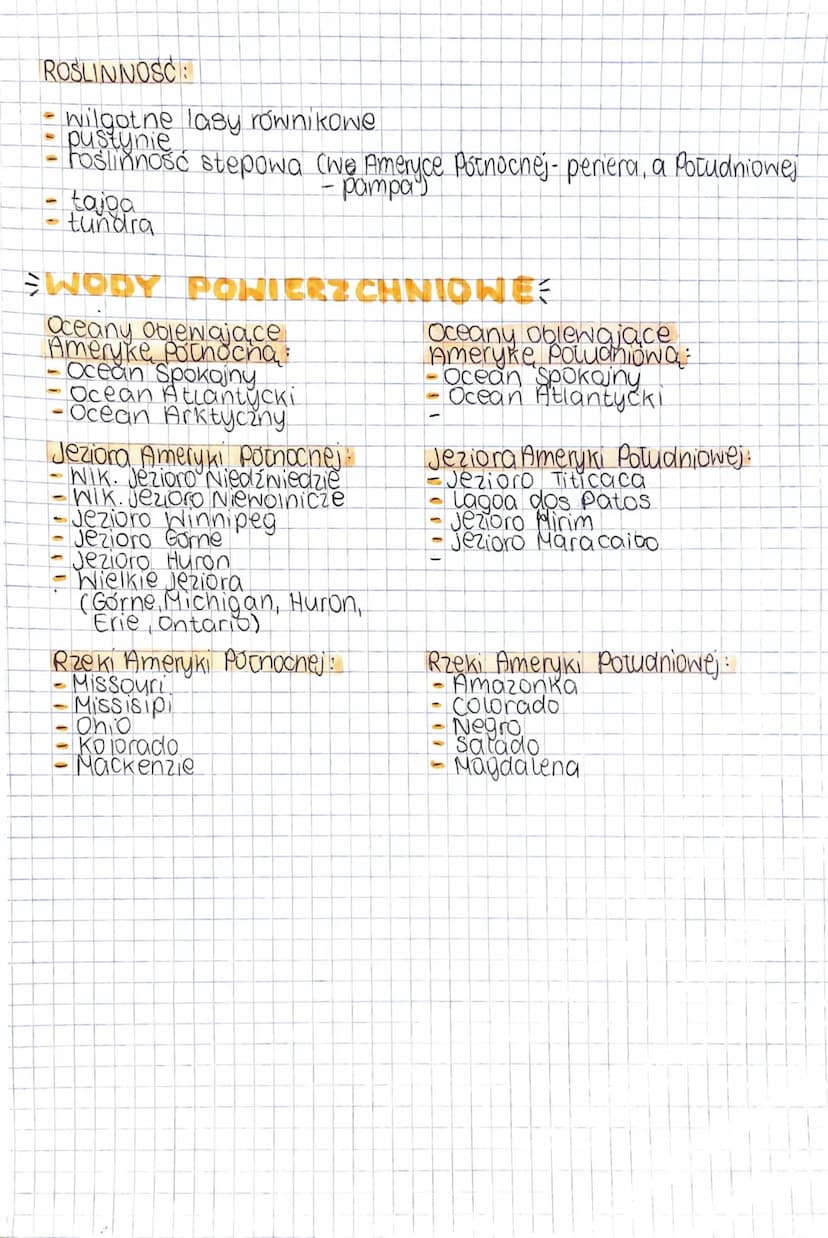 ROŚLINNOŚĆ:
- wilgotne lasy równikowe
- pustynie
- roślinność stepowa (we Ameryce Północnej - periera, a Południowej
- pampa)
- tajga
- tundra
WODY POWIERZCHNIOWE
Oceany oblewające
Amerykę Północną:
- Ocean Spokojny
- Ocean Atlantycki
- Ocean Arktyczny
Oceany oblewające
Amerykę Południową:
- Ocean Spokojny
- Ocean Atlantycki
-
Jeziora Ameryki Północnej:
- Wlk. Jezioro Niedźwiedzie
- Wlk. Jezioro Niewolnicze
- Jezioro Winnipeg
- Jezioro Górne
- Jezioro Huron
- Wielkie Jeziora
(Górne, Michigan, Huron,
Erie, Ontario)
Jeziora Ameryki Południowej:
- Jezioro Titicaca
- Lagoa dos Patos
- Jezioro Mirim
- Jezioro Maracaibo
-
Rzeki Ameryki Północnej:
- Missouri
- Missisipi
- Ohio
- Kolorado
- Mackenzie
Rzeki Ameryki Południowej:
- Amazonka
- Colorado
- Negro
- Salado
- Magdalena